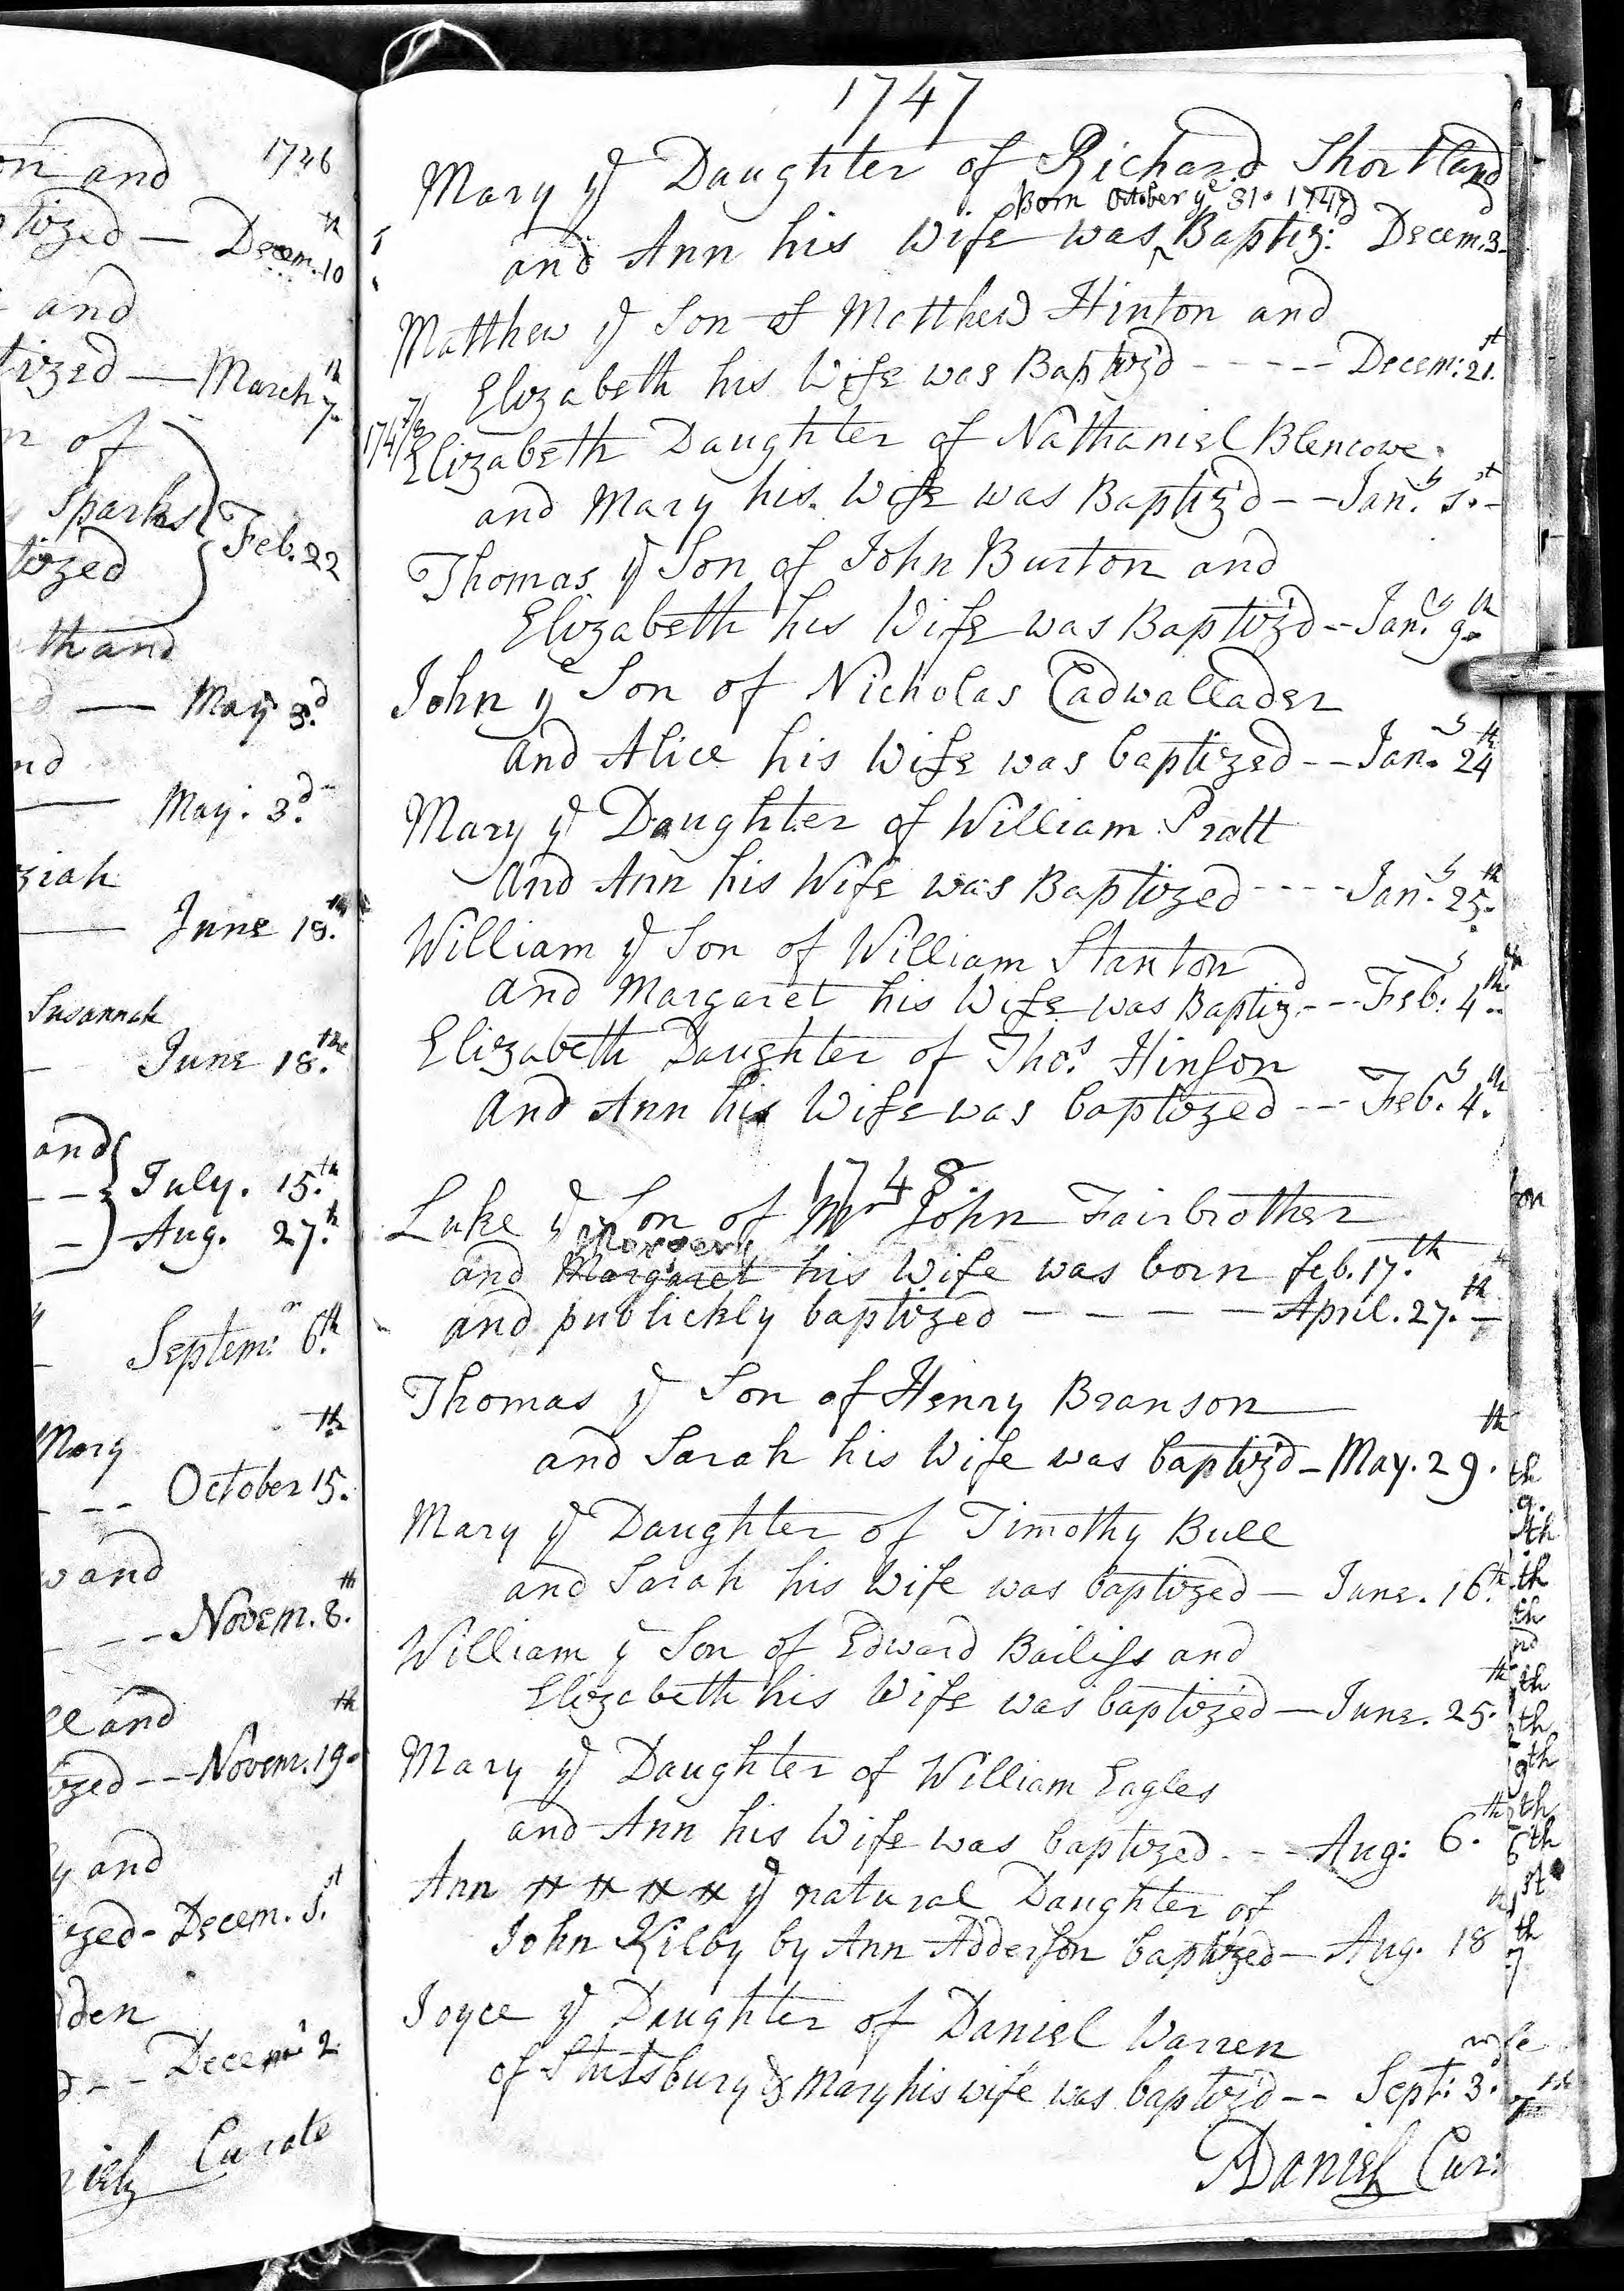 1746
on and
tized — Decem. 10th
and
tized — March 7th
of
Sparks
tized
Feb. 22
th and
— May 3d
nd
— May. 3d
ziah
— June 19th
Susannah
June 18.the
and
July. 15.th
Aug. 27.th
Septem: 6th
Mary
October 15.th
w and
Novem. 8.th
ll and
ized --- Novem. 19.th
y and
ized - Decem. 1.st
den
Decem 2
Curate
1747
Mary ye Daughter of Richard Shortland
Born October ye 31. 1747
and Ann his Wife was ^ Baptiz:d Decem. 3d
Matthew ye Son of Matthew Hinton and
Elizabeth his Wife was Baptiz'd ----- Decem: 21.st
1747/8
Elizabeth Daughter of Nathaniel Blencowe
and Mary his Wife was Baptiz'd -- Jan.y 1.st -
Thomas ye Son of John Burton and
Elizabeth his Wife was Baptiz'd -- Jan.y 9th
John ye Son of Nicholas Cadwallader
and Alice his Wife was baptized -- Jan.y 24th
Mary ye Daughter of William Pratt
and Ann his Wife was Baptized ---- Jan.y 25.th
William ye Son of William Stanton
and Margaret his Wife was Baptiz.d -- Feb.y 4th
Elizabeth Daughter of Tho.s Hinson
and Ann his Wife was baptized --- Feb.y 4.th
1748.
Luke ye Son of Mr John Fairbrother
Margery
and Margaret his Wife was born feb. 17.th
and publickly baptized — — — — April. 27.th —
Thomas ye Son of Henry Branson
and Sarah his Wife was baptiz'd - May. 29.th
Mary ye Daughter of Timothy Bull
and Sarah his Wife was baptized — June. 16.th
William ye Son of Edward Bailiss and
Elizabeth his Wife was baptized — June. 25.th
Mary ye Daughter of William Eagles
and Ann his Wife was baptized --- Aug: 6.th
Ann ye natural Daughter of
John Kilby by Ann Adderson baptized — Aug. 18th
Joyce ye Daughter of Daniel Warren
of Stutsbury & Mary his wife was baptiz'd -- Sept: 3.d
Daniel Cur: